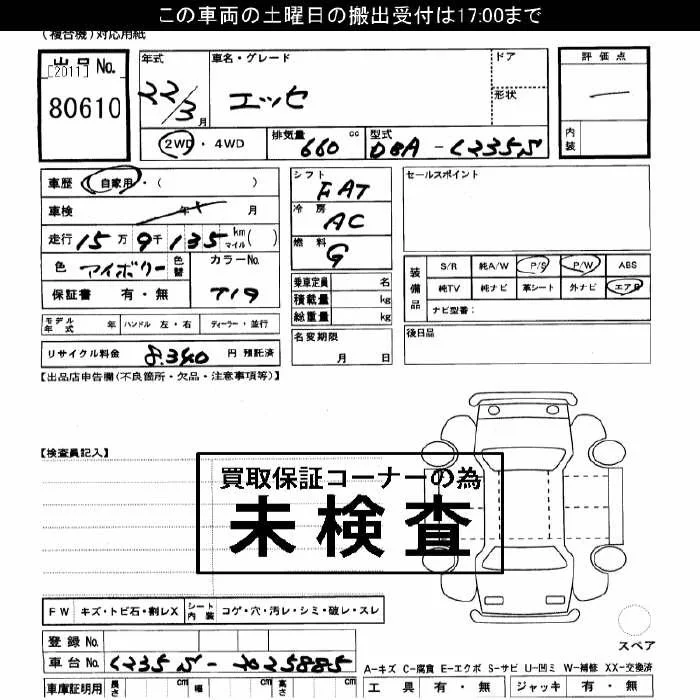 この車両の土曜日の搬出受付は17:00まで
(複合機)対応用紙
出品 No.
[2011]
80610
年式 22/3月
車名・グレード エッセ
ドア
形状
評価点
内装
2WD・4WD
排気量 660 cc
型式 DBA-L235S
車歴 自家用・( )
車検 年 月
走行 15万9千135 km マイル( )
色 アイボリー 色替 カラーNo. T19
保証書 有・無
シフト FAT
冷房 AC
燃料 G
乗車定員 名
積載量 kg
総重量 kg
セールスポイント
装備品
S/R 純A/W P/S P/W ABS
純TV 純ナビ 革シート 外ナビ エアB
ナビ型番:
モデル年式 年 ハンドル 左・右 ディーラー・並行
名変期限 月 日
後日品
リサイクル料金 8,340 円 預託済
【出品店申告欄(不良箇所・欠品・注意事項等)】
【検査員記入】
買取保証コーナーの為
未検査
FW キズ・トビ石・割レX シート内装 コゲ・穴・汚レ・シミ・破レ・スレ
スペア
登録No.
車台No. L235S-2025885
A-キズ C-腐食 E-エクボ S-サビ U-凹ミ W-補修 XX-交換済
車庫証明用 長さ cm 幅 cm 高さ cm
工具 有・無 ジャッキ 有・無